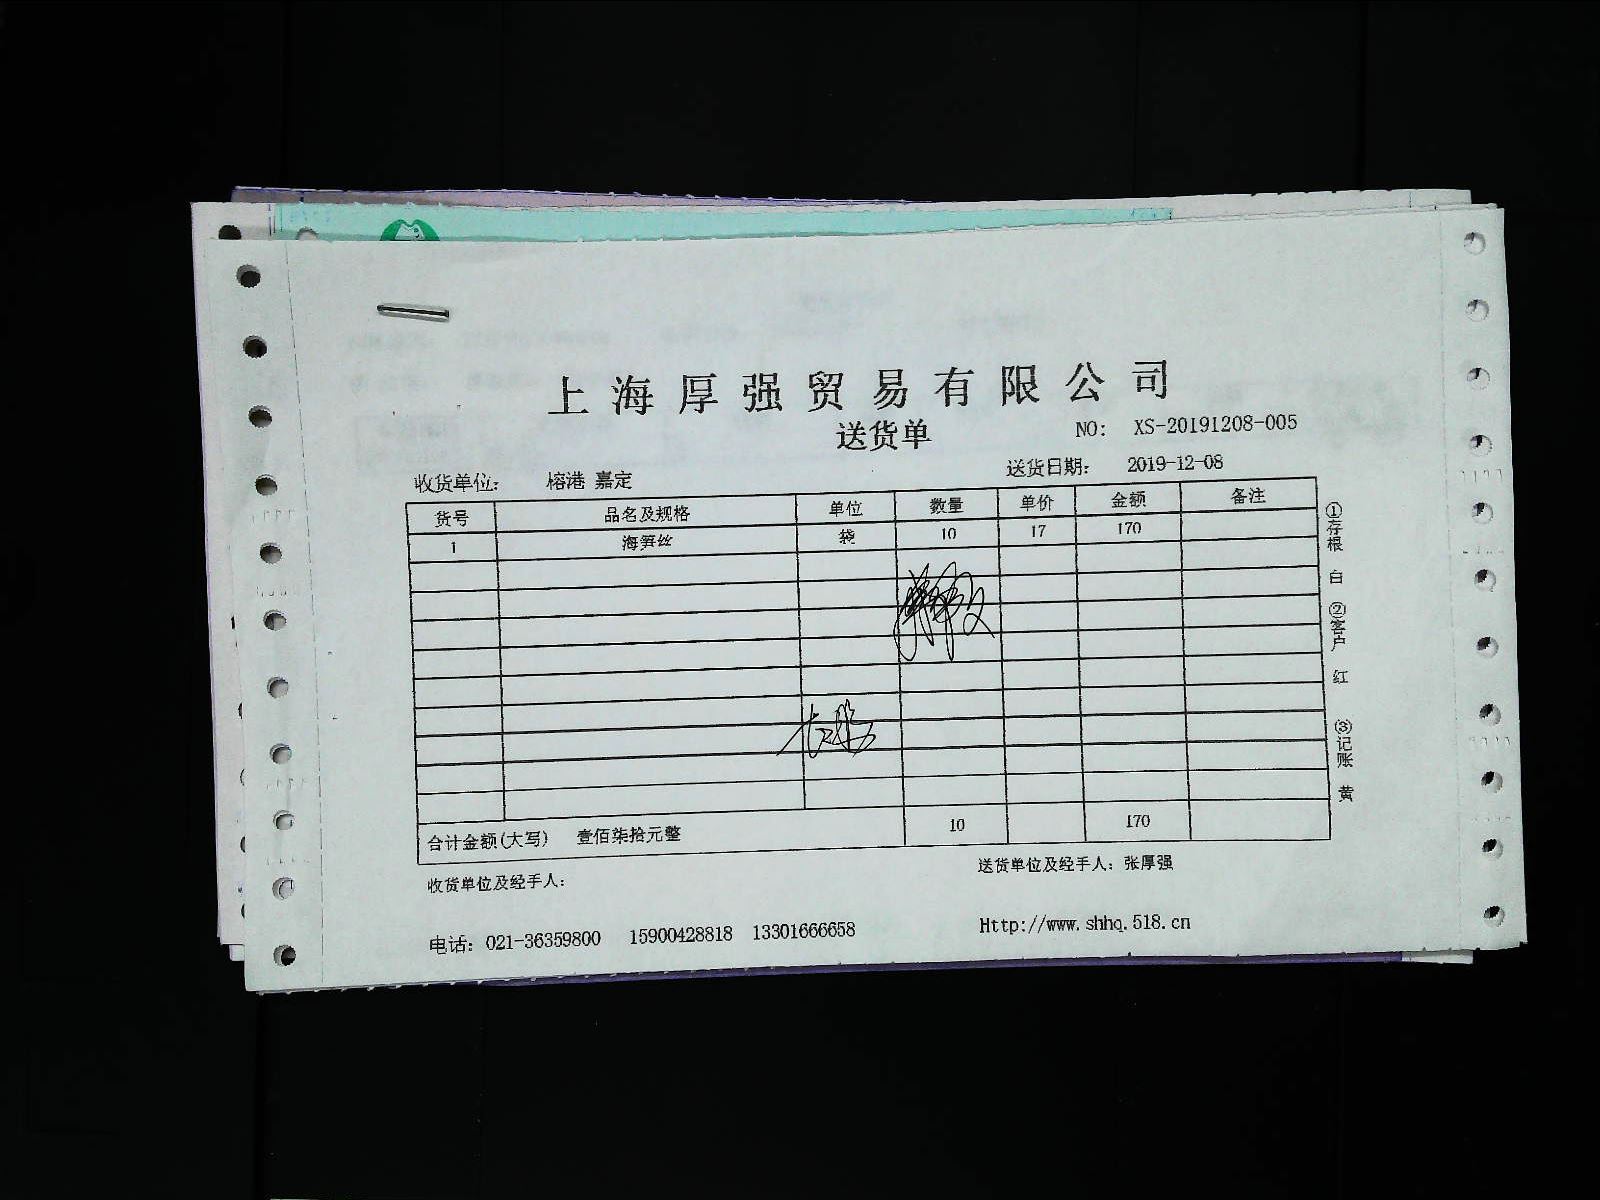 上海厚强贸易有限公司
送货单
NO: XS-20191208-005
收货单位: 榕港 嘉定
送货日期: 2019-12-08
货号 品名及规格 单位 数量 单价 金额 备注
1 海笋丝 袋 10 17 170
合计金额(大写) 壹佰柒拾元整 10 170
收货单位及经手人:
送货单位及经手人: 张厚强
电话: 021-36359800 15900428818 13301666658
Http://www.shhq.518.cn
①存根 白 ②客户 红 ③记账 黄